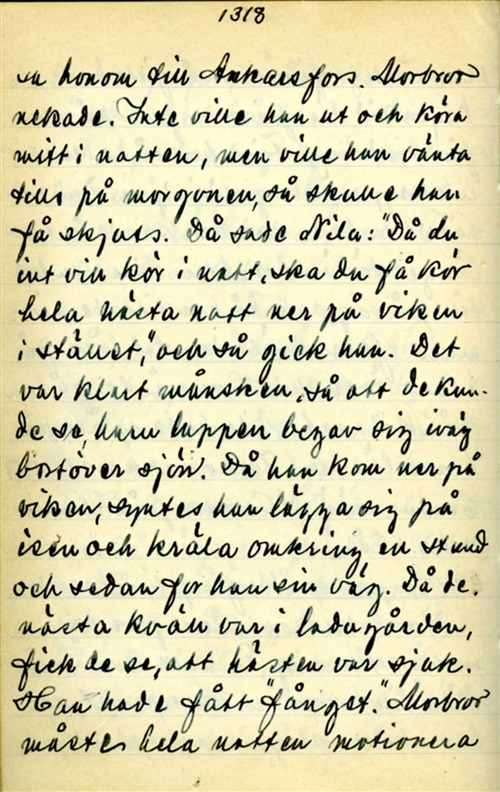 1318
sa honom till Ankarsfors. Morbror
nekade. Inte ville han ut och köra
mitt i natten, men ville han vänta
tills på morgonen, så skulle han
få skjuts. Då sade Nila: "Då du
int vill kör i natt, ska du få kör
hela nästa natt ner på viken
i stället," och så gick han. Det
var klart månsken, så att de kun-
de se, huru lappen begav sig iväg
bortöver sjön. Då han kom ner på
viken, syntes han lägga sig på
isen och kräla omkring en stund
och sedan for han sin väg. Då de
nästa kväll var i ladugården,
fick de se, att hästen var sjuk.
Han hade fått "fånget." Morbror
måste hela natten motionera